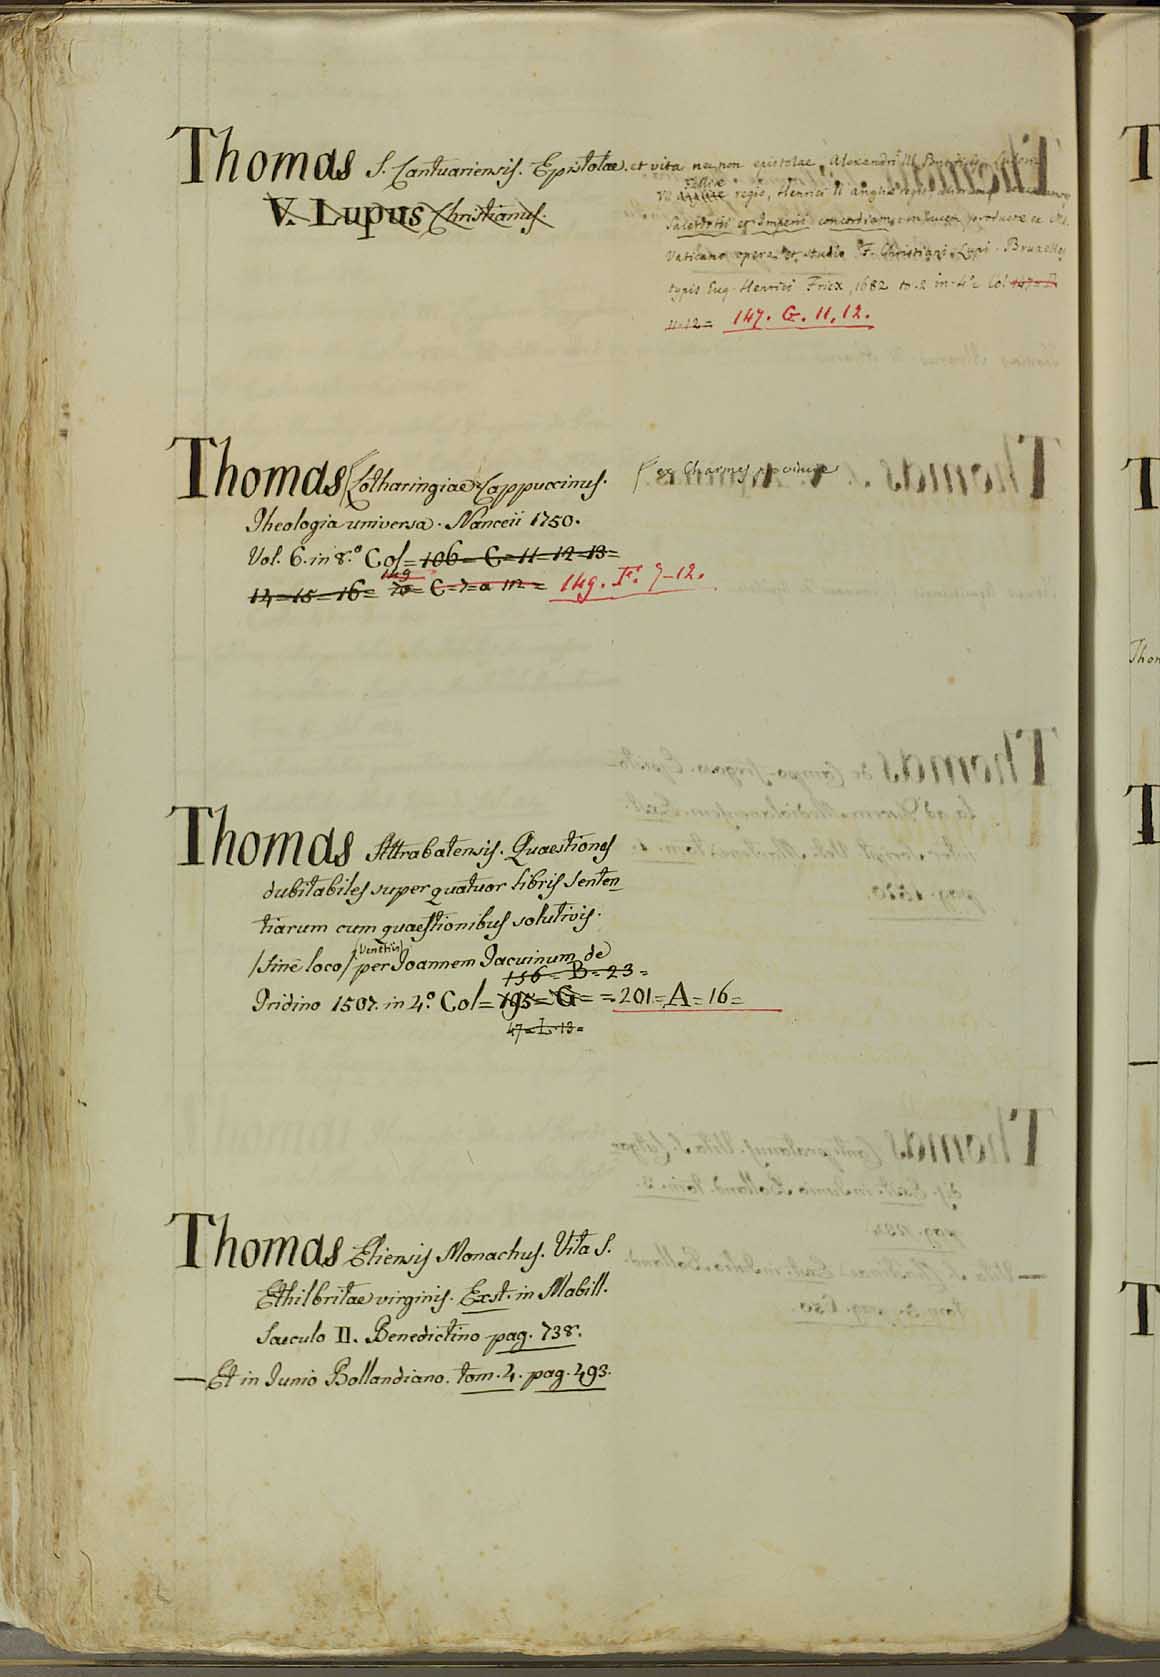 Thomas S. Cantuariensis. Epistolae. et vita nec non epistolae Alexandri III Pontificis
VII Galliae angliae regis, Henrici II angliae regis
V. Lupus Christianus.
Sacerdotii et Imperii concordiam in lucem productae ex Ms.
Vaticano opera et studio F. Christiani Lupi. Bruxelles
typis Eug. Henrici Fricx, 1682 to. 2 in-4º Col 147=G
11=12= 147. G. 11, 12.
Thomas Lotharingiae Cappuccinus. ex Charmes provinciae
Theologia universa. Nanceii 1750.
Vol. 6. in 8.º Col=106=C=11=12=13=
14=15=16= 149 70=C=7=a 12= 149. F. 7-12.
Thomas Attrabatensis. Quaestiones
dubitabiles super quatuor libris Senten
tiarum cum quaestionibus solutivis.
/sine loco/ Venetiis per Joannem Tacuinum de
156=B=23=
Tridino 1507. in 4.º Col=195=G= =201=A=16=
47=L=13=
Thomas Eliensis Monachus. Vita S.
Ethilbritae virginis. Exst. in Mabill.
Saeculo II. Benedictino pag. 738.
— Et in Junio Bollandiano. tom. 4. pag. 493.
Thom